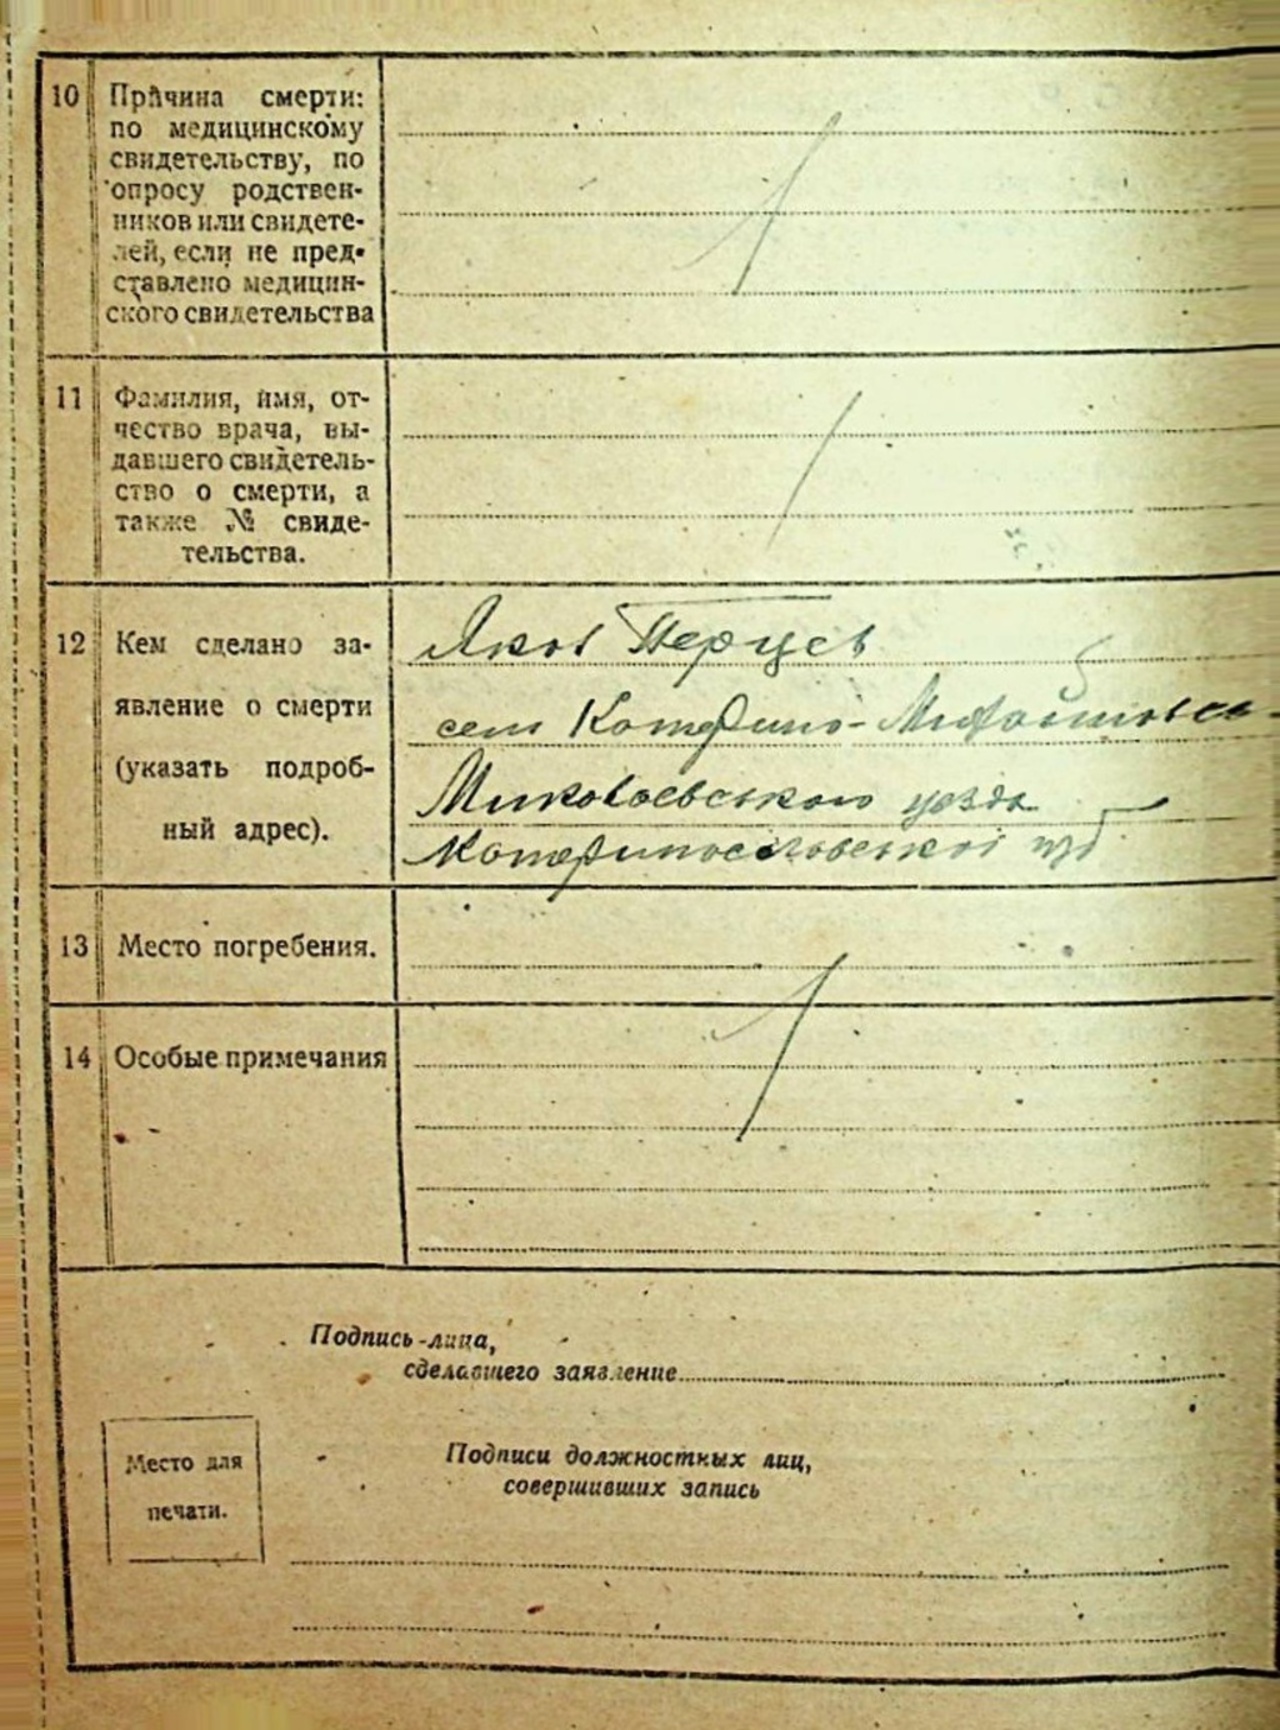 10 Причина смерти:
по медицинскому
свидетельству, по
опросу родствен-
ников или свидете-
лей, если не пред-
ставлено медицин-
ского свидетельства
11 Фамилия, имя, от-
чество врача, вы-
давшего свидетель-
ство о смерти, а
также № свиде-
тельства.
12 Кем сделано за-
явление о смерти
(указать подроб-
ный адрес).
Яков Перцев
село
уезда
губ
13 Место погребения.
14 Особые примечания
Подпись лица,
сделавшего заявление
Место для
печати.
Подписи должностных лиц,
совершивших запись